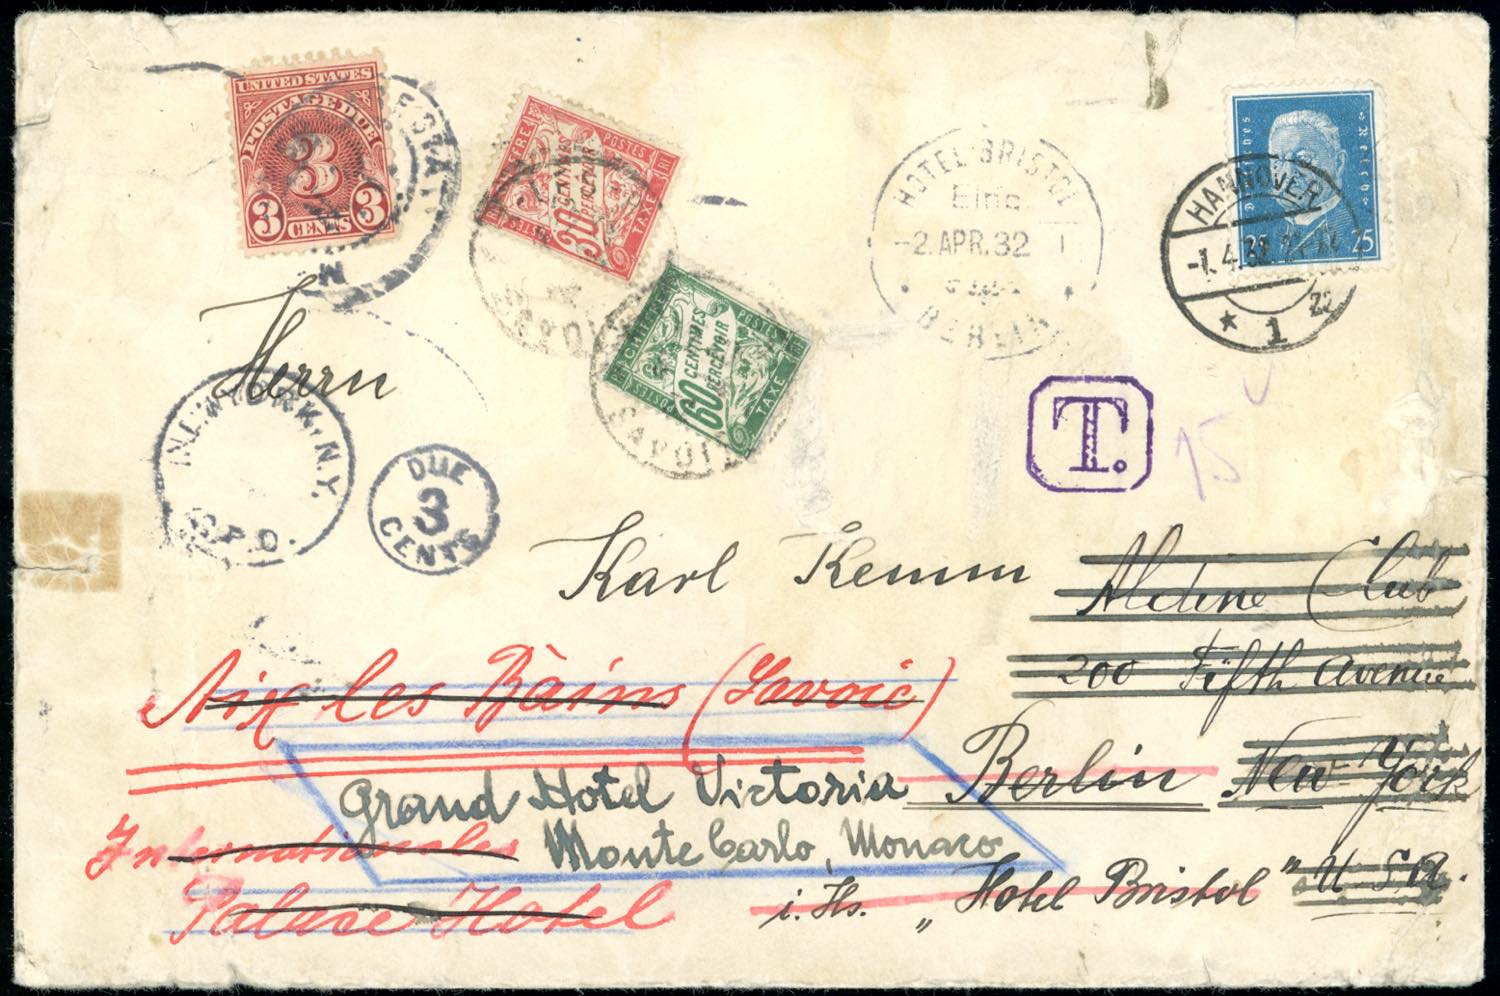 UNITED STATES
POSTAGE DUE
3
3 CENTS 3
POSTES
30 CENTIMES
PERCEVOIR
TAXE
POSTES
60 CENTIMES
PERCEVOIR
TAXE
SAVOIE
HOTEL BRISTOL
Eing
-2. APR. 32
BERLIN
Deutsches Reich
25 25
HANNOVER
-1.4.32.
* 1 22
T.
15
Herrn
NEW YORK, N.Y.
G.P.O.
DUE
3
CENTS
Karl Kemm
Aldine Club
200 Fifth Avenue
Aix les Bains (Savoie)
Berlin New York
Grand Hotel Victoria
Monte Carlo, Monaco
Internationales
Palace Hotel
i. Hs. „Hotel Bristol" U.S.A.